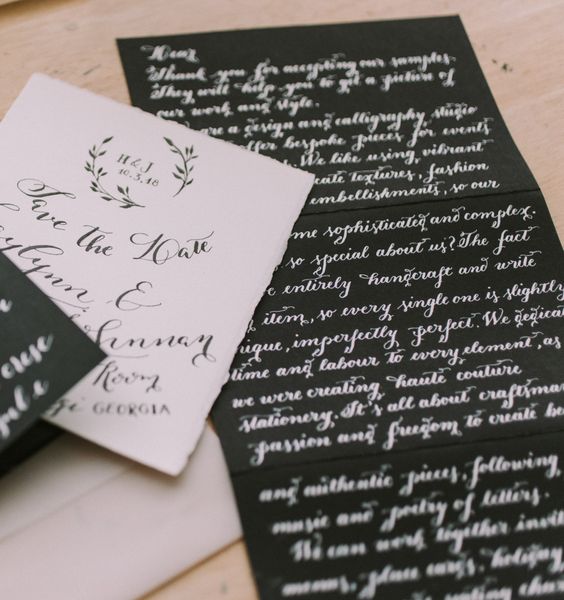 H & J
10.3.18
Save the Date
&
Room
GEORGIA
Dear
Thank you for accepting our samples.
They will help you to get a picture of
our work and style.
are a design and calligraphy studio
offer bespoke pieces for events
We like using, vibrant
textures, fashion
embellishments, so our
sophisticated and complex.
so special about us? The fact
entirely handcraft and write
item, so every single one is slightly
imperfectly perfect. We dedicate
time and labour to every element, as
we were creating haute couture
stationery. It's all about craftsman
passion and freedom to create be
and authentic pieces, following,
music and poetry of letters.
We can work together invit
menus, place cards, holiday